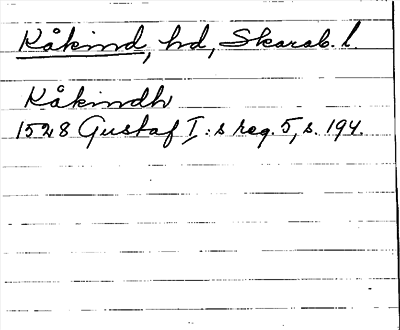 Kåkind, hd, Skarab. l.
Kåkindh
1528 Gustaf I:s reg. 5, s. 194.